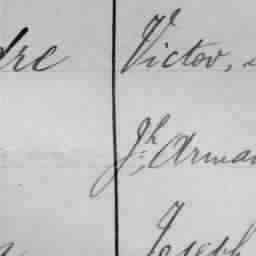 dre Victor,
Jh. Arman
Joseph